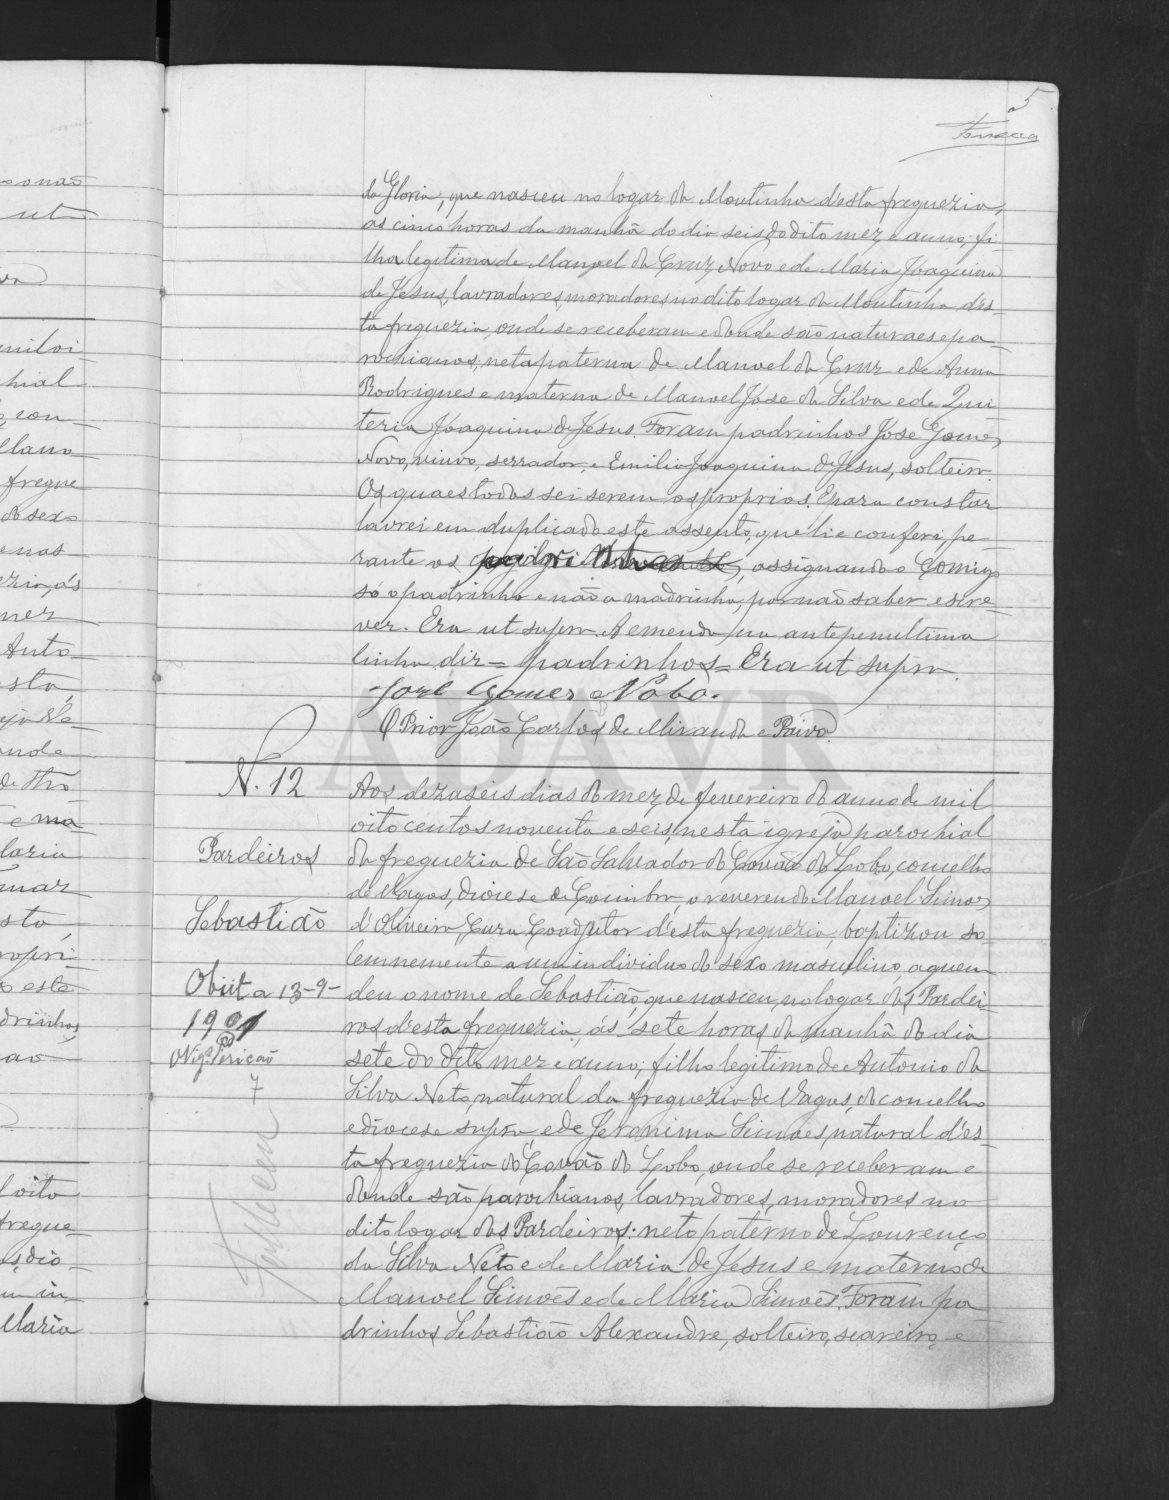 5
Fonseca
da Gloria, que nasceu no logar da Moutinha d'esta freguezia,
as cinco horas da manhã do dia seis do dito mez e anno, fi
lha legitima de Manoel da Cruz Novo e de Maria Joaquina
de Jesus, lavradores, moradores no dito logar da Moutinha d'es-
ta freguezia, onde se receberam e donde são naturaes e pa-
rochianos; neta paterna de Manoel da Cruz e de Anna
Rodrigues e materna de Manoel José da Silva e de Qui
teria Joaquina de Jesus. Foram padrinhos José Gomes
Novo, viuvo, serrador, e Emilia Joaquina de Jesus, solteira.
Os quaes todos sei serem os proprios. E para constar
lavrei em duplicado este assento, que li e conferi pe-
rante os, assignando o comigo
só o padrinho e não a madrinha, por não saber escre-
ver. Era ut supra. A emenda na antepenultima
linha diz = padrinhos = Era ut supra.
José Gomes Nobo.
O Prior João Carlos de Miranda e Paiva.
N. 12
Pardeiros
Sebastião
Obiit a 13-9-
1901
O Vigº Pericão
7
Aos dezaseis dias do mez de fevereiro do anno de mil
oito centos noventa e seis, nesta igreja parochial
da freguezia de São Salvador do Covão do Lobo, concelho
de Vagos, diocese de Coimbra, o reverendo Manoel Simões
d'Oliveira, Cura Coadjutor d'esta freguezia, baptizou so-
lemnemente a um individuo do sexo masculino, a quem
deu o nome de Sebastião, que nasceu, no logar dos Pardei-
ros d'esta freguezia, ás sete horas da manhã do dia
sete do dito mez e anno, filho legitimo de Antonio da
Silva Neto, natural da freguezia de Vagos, do concelho
e diocese supra, e de Jeronima Simões, natural d'es-
ta freguezia do Covão do Lobo, onde se receberam e
donde são parochianos, lavradores, moradores no
dito logar dos Pardeiros: neto paterno de Lourenço
da Silva Neto e de Maria de Jesus e materno de
Manoel Simões e de Maria Simões. Foram pa
drinhos Sebastião Alexandre, solteiro, seareiro, e